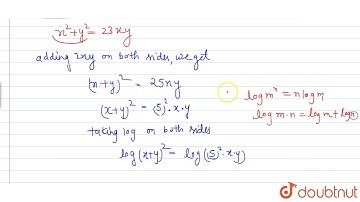 x²+y²= 23xy
adding 2xy on both sides, we get
(x+y)² = 25xy
(x+y)² = (5)².x.y
taking log on both sides
log(x+y)² = log((5)².x.y)
log mⁿ = n log m
log m.n = log m + log n
doubtnut